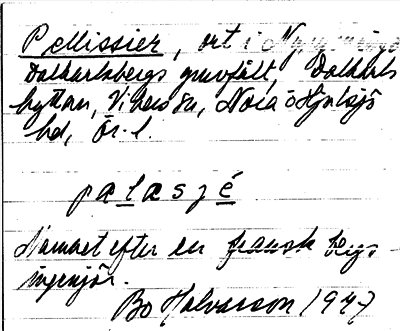 Pellissier, ort i
Dalkarlsbergs gruvfält, Dalkarls
hyttan, Vikers sn, Nora o Hjulsjö
bd, Ör. l.
palasjé
Namnet efter en fransk bergs-
ingenjör.
Bo Halvarsson 1947